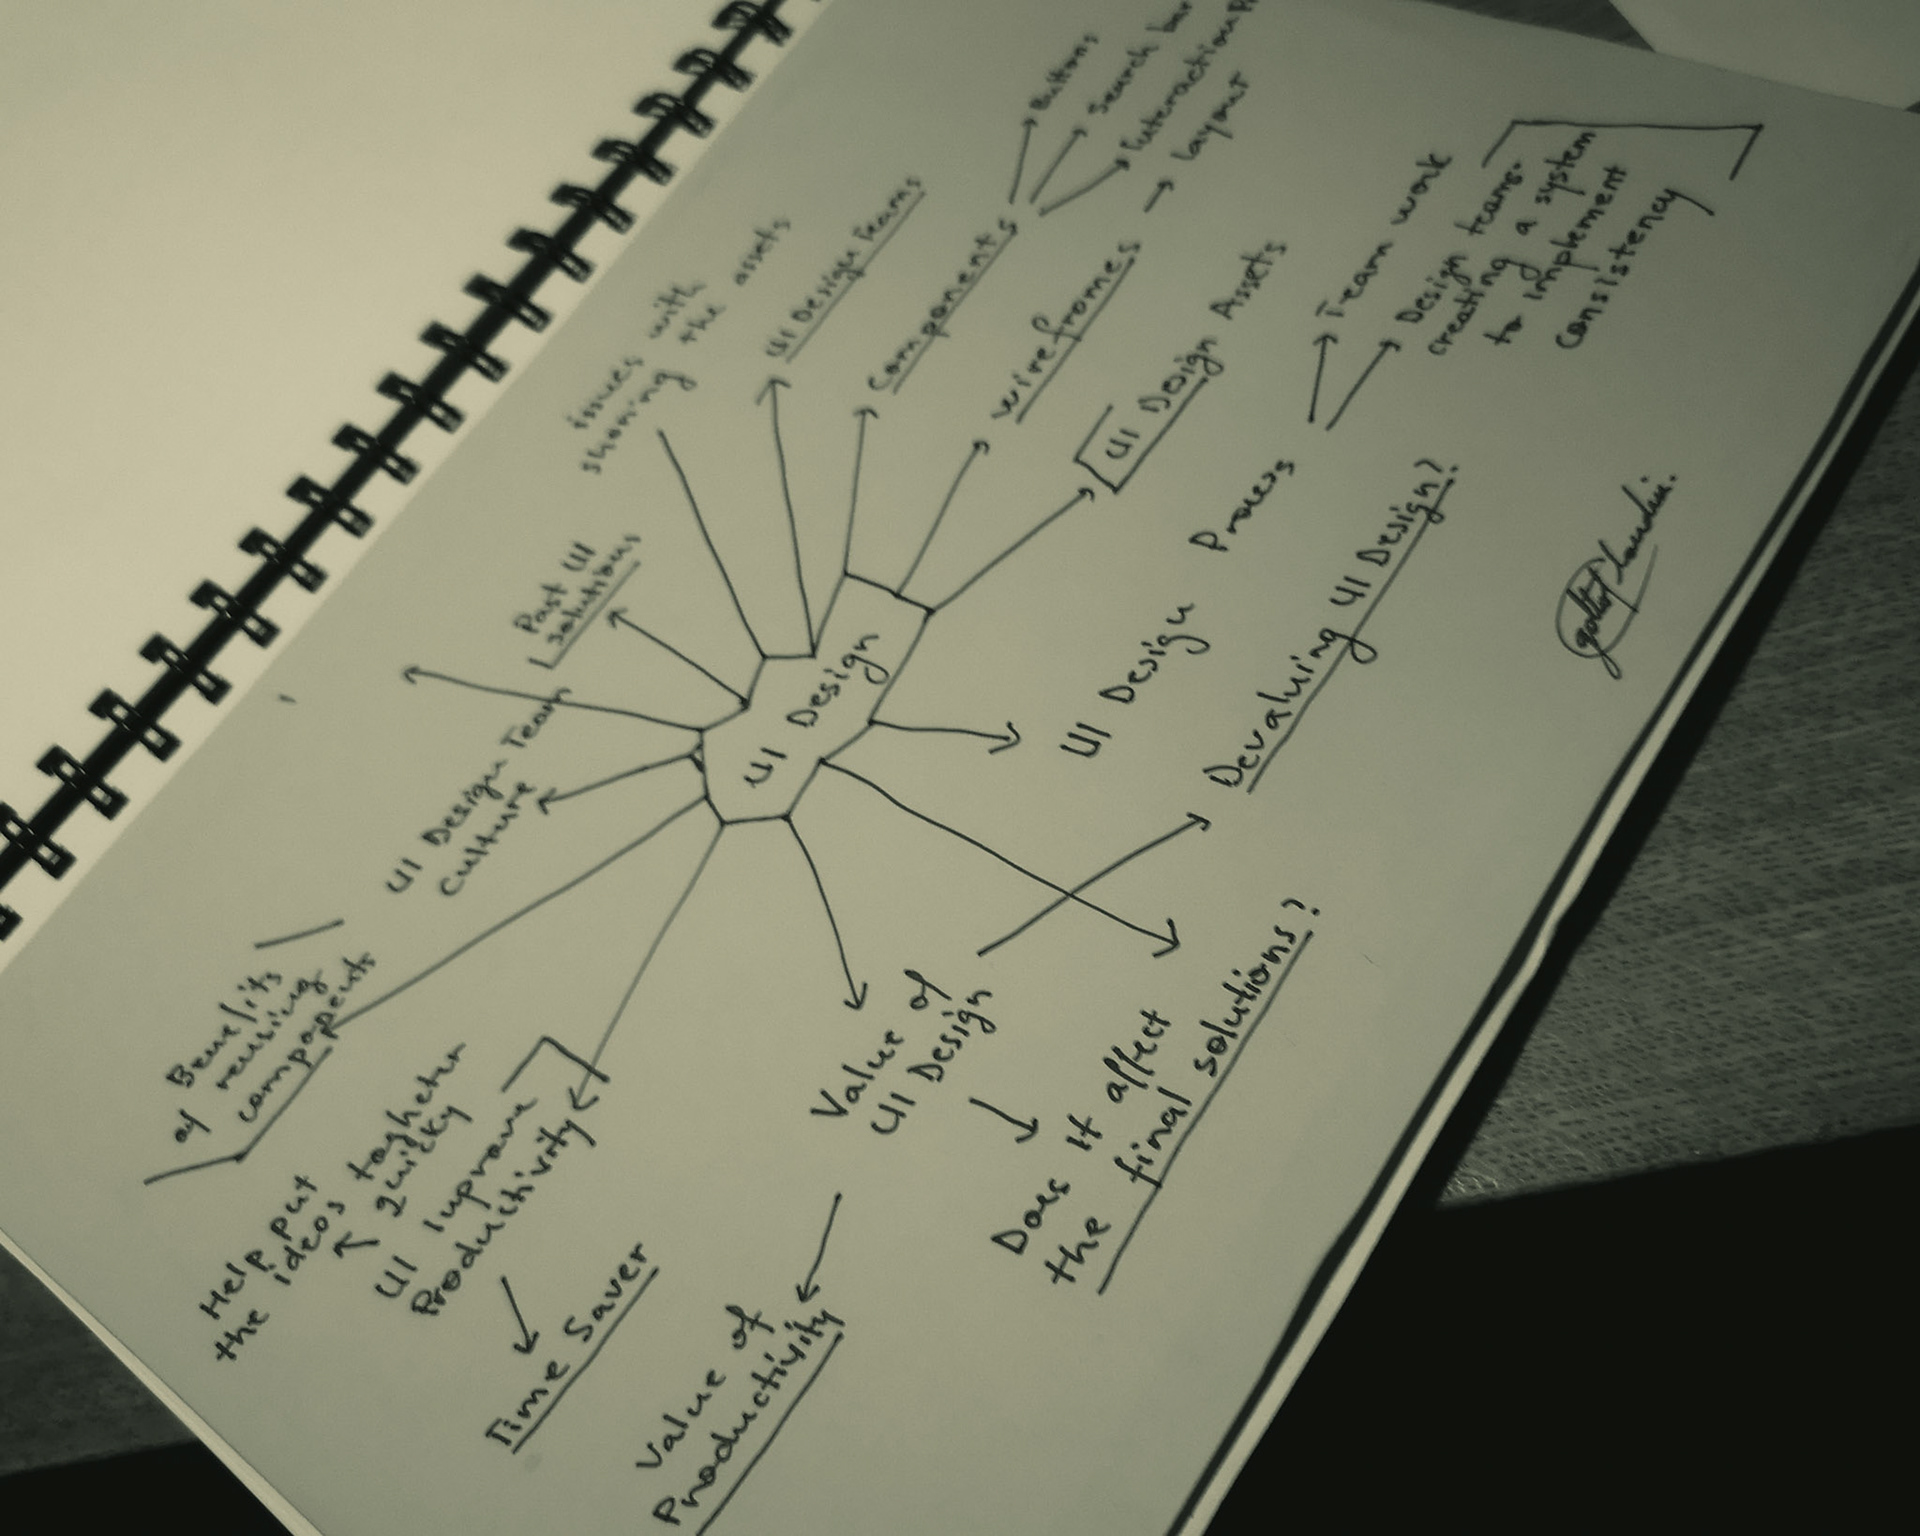 Buttons
Search bar
Interaction
Layout
issues with
sharing the assets
UI Design Teams
Components
wireframes
UI Design Assets
Team work
Design teams.
creating a system
to implement
consistency
Past UI
solutions
UI Design
UI Design Process
Devaluing UI Design?
UI Design Team
Culture
Benefits
of reusing
components
Help put
the ideos togheter
quicky
UI Improve
Productivity
Time Saver
Value of
UI Design
Does it affect
the final solutions?
Value of
Productivity